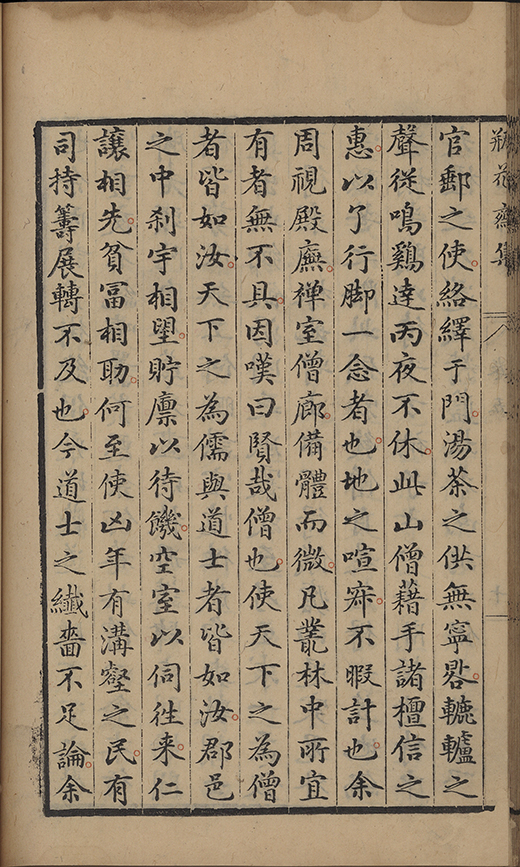 瓶花齋集
官郵之使絡繹于門湯茶之供無寧晷轆轤之
聲從鳴鷄達丙夜不休此山僧藉手諸檀信之
惠以了行脚一念者也地之喧寂不暇計也余
周視殿廡禅室僧廊備體而微凡叢林中所宜
有者無不具因嘆曰賢哉僧也使天下之為僧
者皆如汝天下之為儒與道士者皆如汝郡邑
之中刹宇相望貯廪以待饑空室以伺徃来仁
讓相先貧冨相助何至使凶年有溝壑之民有
司持籌展轉不及也今道士之纎嗇不足論余